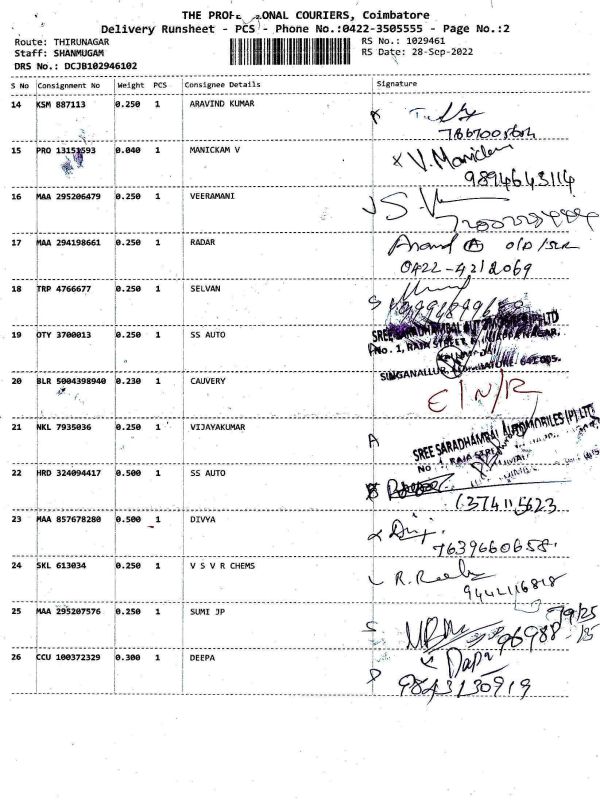 THE PROFE ONAL COURIERS, Coimbatore
Delivery Runsheet - PCS - Phone No.:0422-3505555 - Page No.:2
Route: THIRUNAGAR
RS No.: 1029461
Staff: SHANMUGAM
RS Date: 28-Sep-2022
DRS No.: DCJB102946102
S No Consignment No Weight PCS Consignee Details Signature
14 KSM 887113 0.250 1 ARAVIND KUMAR
15 PRO 13151593 0.040 1 MANICKAM V
x V. Manickam
9894643114
16 MAA 295206479 0.250 1 VEERAMANI
17 MAA 294198661 0.250 1 RADAR
Anand
0422-4212069
18 TRP 4766677 0.250 1 SELVAN
19 OTY 3700013 0.250 1 SS AUTO
SREE SARADHAMBAL AUTOMOBILES (P) LTD
No. 1, RAJA STREET
SINGANALLUR, COIMBATORE- 641005.
20 BLR 5004398940 0.230 1 CAUVERY
E/N/R
21 NKL 7935036 0.250 1 VIJAYAKUMAR
A
SREE SARADHAMBAL AUTOMOBILES (P) LTD
22 HRD 324094417 0.500 1 SS AUTO
6374115623
23 MAA 857678280 0.500 1 DIVYA
7639660658
24 SKL 613034 0.250 1 V S V R CHEMS
9442116818
25 MAA 295207576 0.250 1 SUMI JP
S
96988
26 CCU 100372329 0.300 1 DEEPA
9843130919